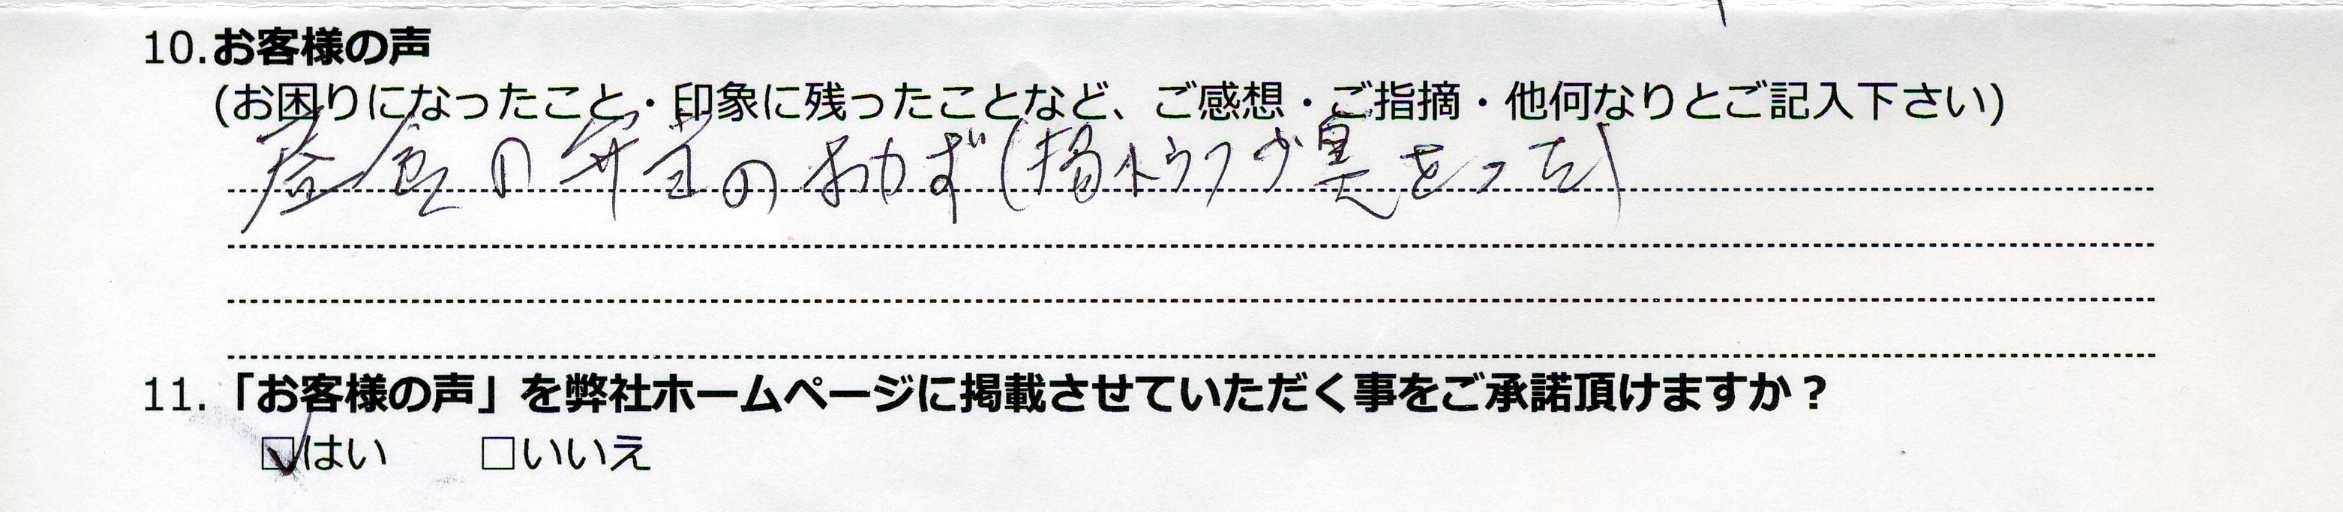 10.お客様の声
(お困りになったこと・印象に残ったことなど、ご感想・ご指摘・他何なりとご記入下さい)
昼食の弁当のおかず(揚トウフが臭をった)
11.「お客様の声」を弊社ホームページに掲載させていただく事をご承諾頂けますか？
☑はい □いいえ